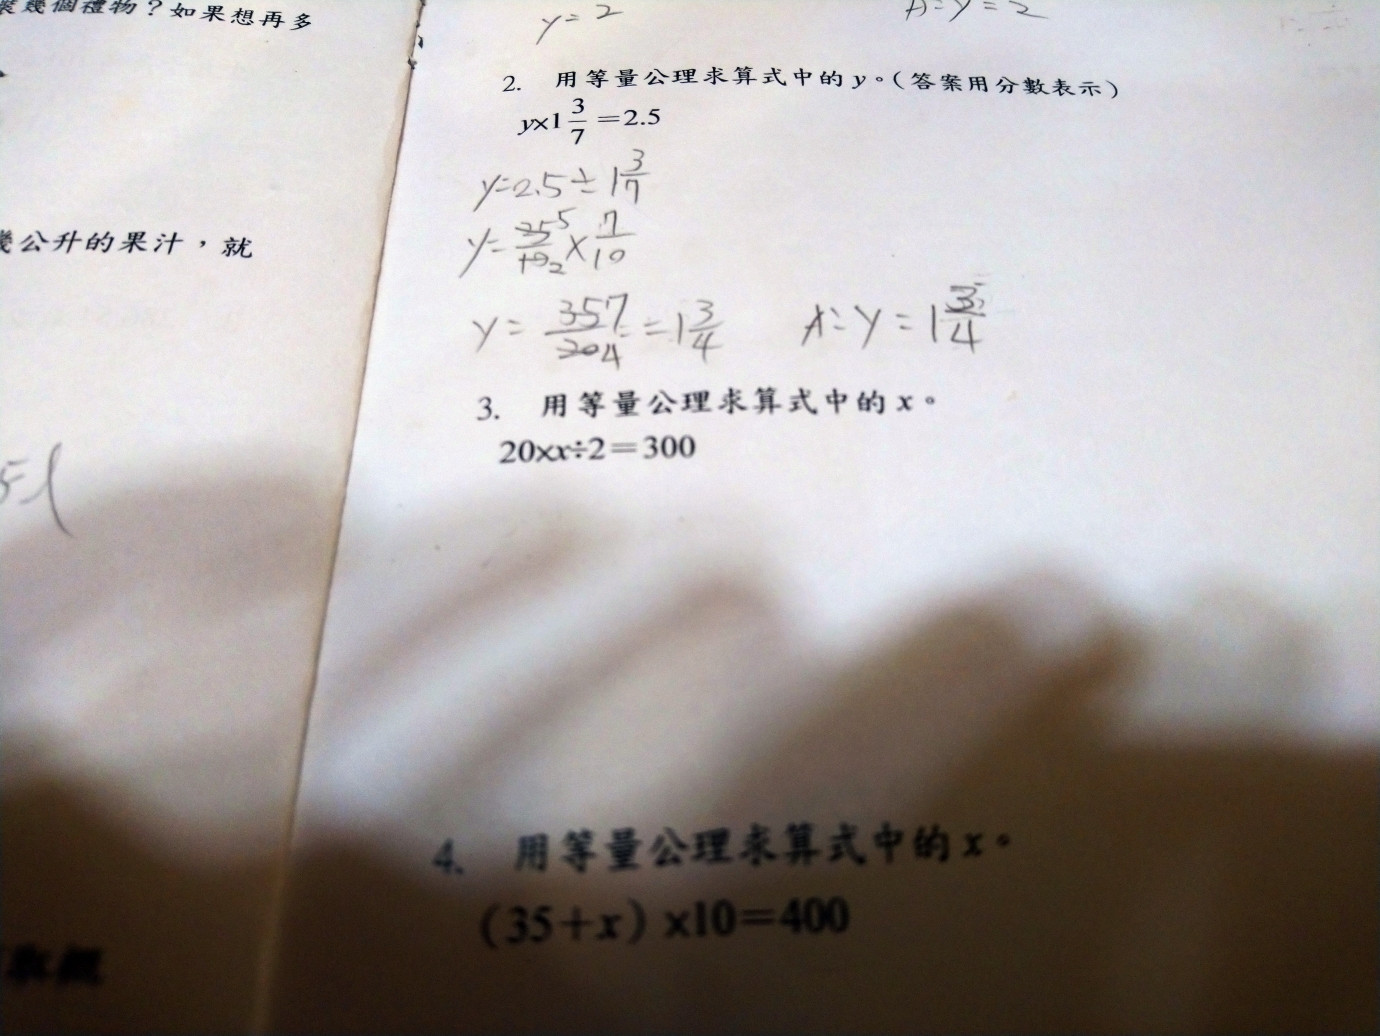 幾個禮物？如果想再多
公升的果汁，就
y=2
A:y=2
2. 用等量公理求算式中的y。（答案用分數表示）
y×1 3/7 =2.5
y=2.5÷1 3/7
y= 25 5/10 2 × 7/10
y= 35 7/20 4 =1 3/4 A:y=1 3/4
3. 用等量公理求算式中的x。
20×x÷2=300
4. 用等量公理求算式中的x。
(35+x)×10=400